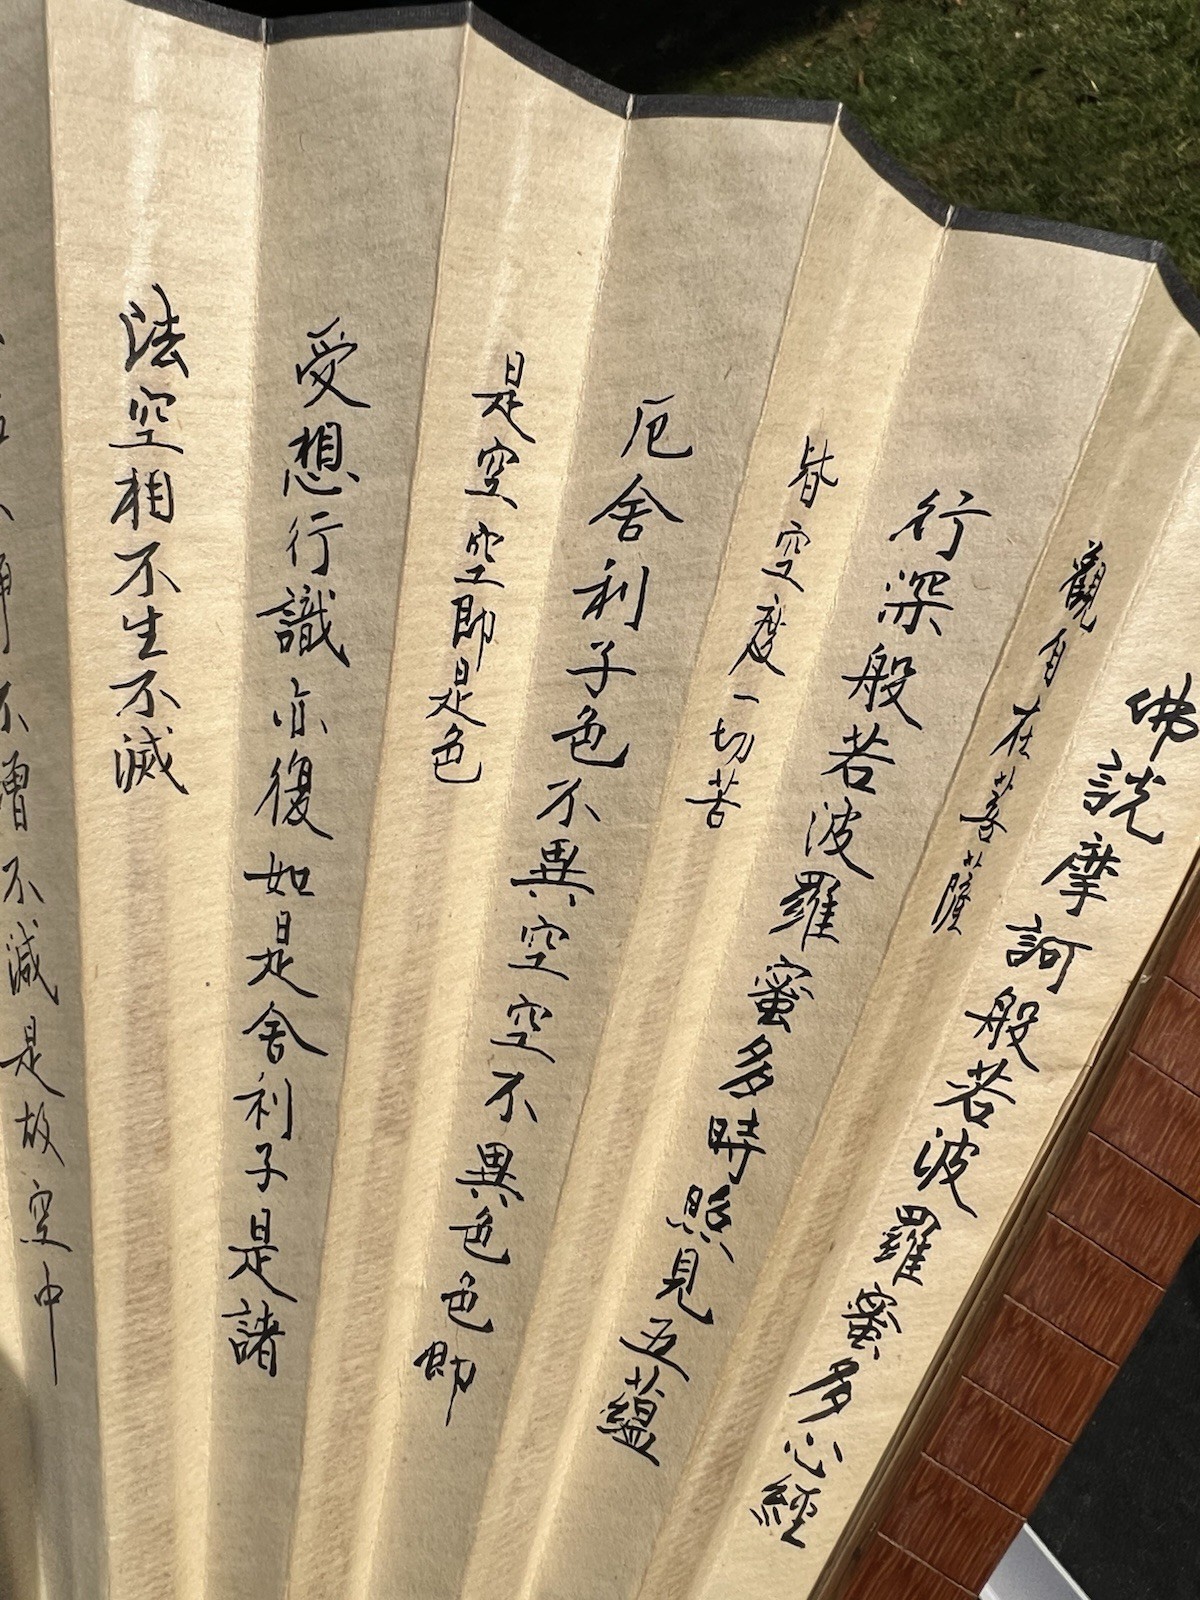 佛説摩訶般若波羅蜜多心經
觀自在菩薩
行深般若波羅蜜多時照見五蘊
皆空度一切苦
厄舍利子色不異空空不異色色即
是空空即是色
受想行識亦復如是舍利子是諸
法空相不生不滅
不增不減是故空中